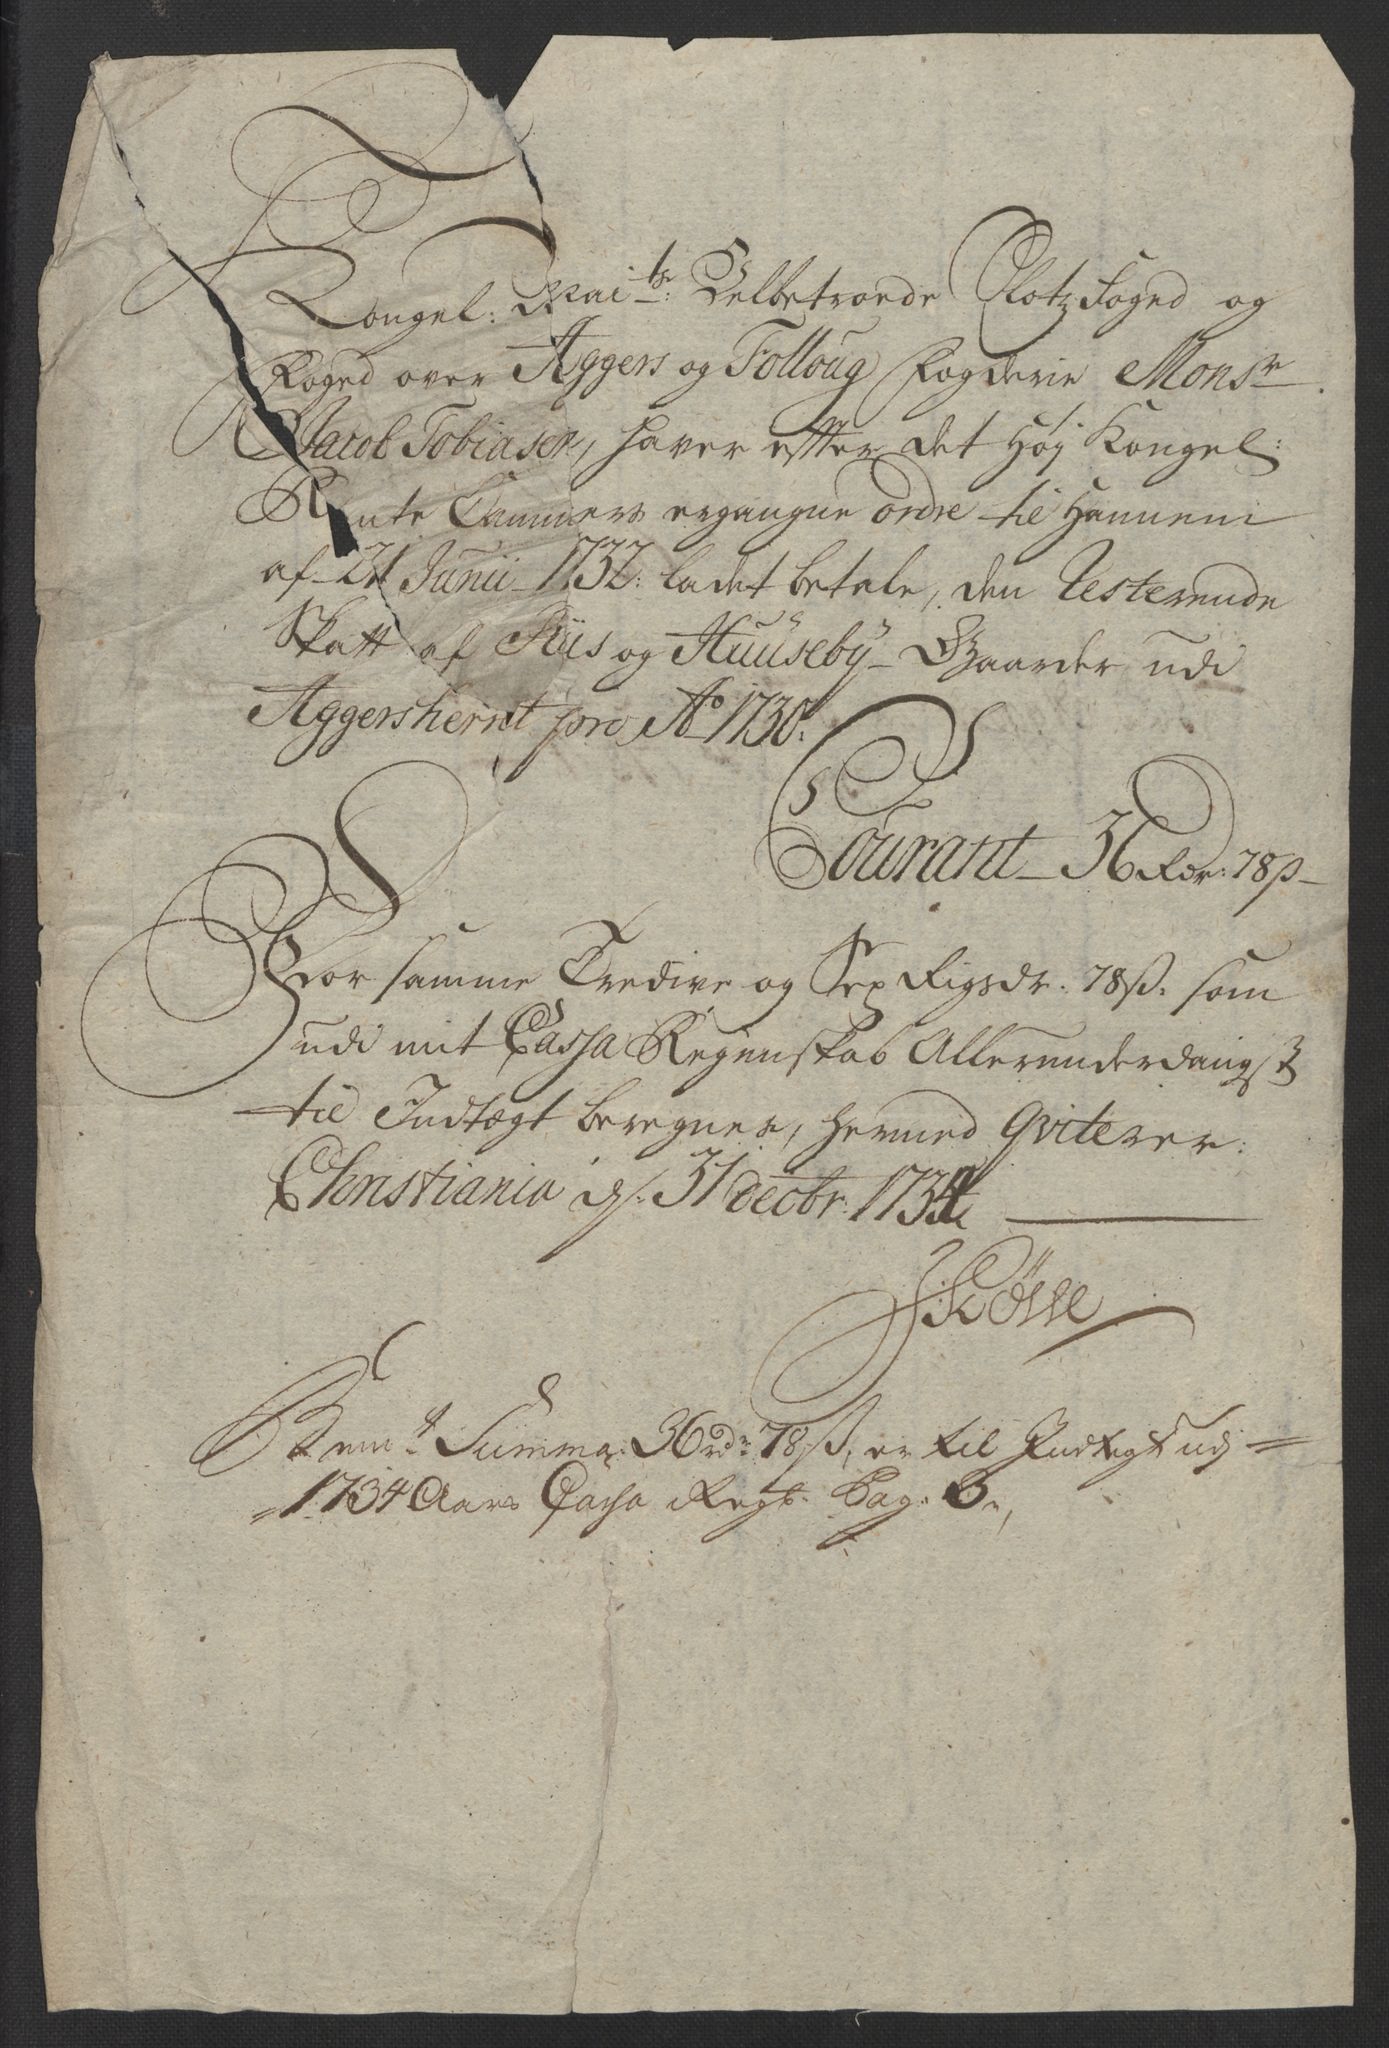 Kongel: Maits: Velbetroede Slotz Foged og
Foged over Aggers og Folloug Fogderie Monsr
Jacob Tobiasen, haver efter det Høj Kongel:
Rente Cammers ergangne ordre til Hannem
af 21 Junii 1732: ladet betale, den Resterende
Skatt af Riis og Huuseby Gaarder udi
Aggersherret pro Ao 1730.
Courant 36 Rdr: 78 ß
For samme Tredive og Sex Rigsdr. 78 ß. som
udi mit Cassa Regenskab Allerunderdanigst
til Indtægt beregnes, hermed Qviterer:
Christiania d. 31 Decbr: 1734
Bemt Summa 36 rdr 78 ß, er til Indtegt udj
1734 Aars Cassa Regsk. Pag: